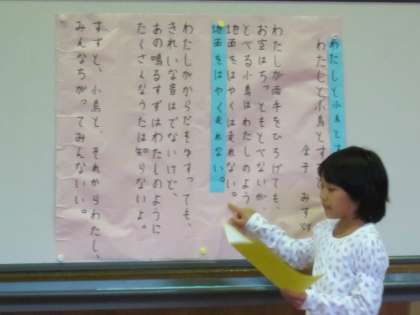 わたしと小鳥とす
わたしと小鳥とす
金子 みすゞ
わたしが両手をひろげても、
お空はちっともとべないが、
とべる小鳥はわたしのよう
地面をはやくは走れない。
地面をはやく走れない。
わたしがからだをゆすっても、
きれいな音はでないけど、
あの鳴るすずはわたしのように
たくさんなうたは知らないよ。
すずと、小鳥と、それからわたし、
みんなちがってみんないい。